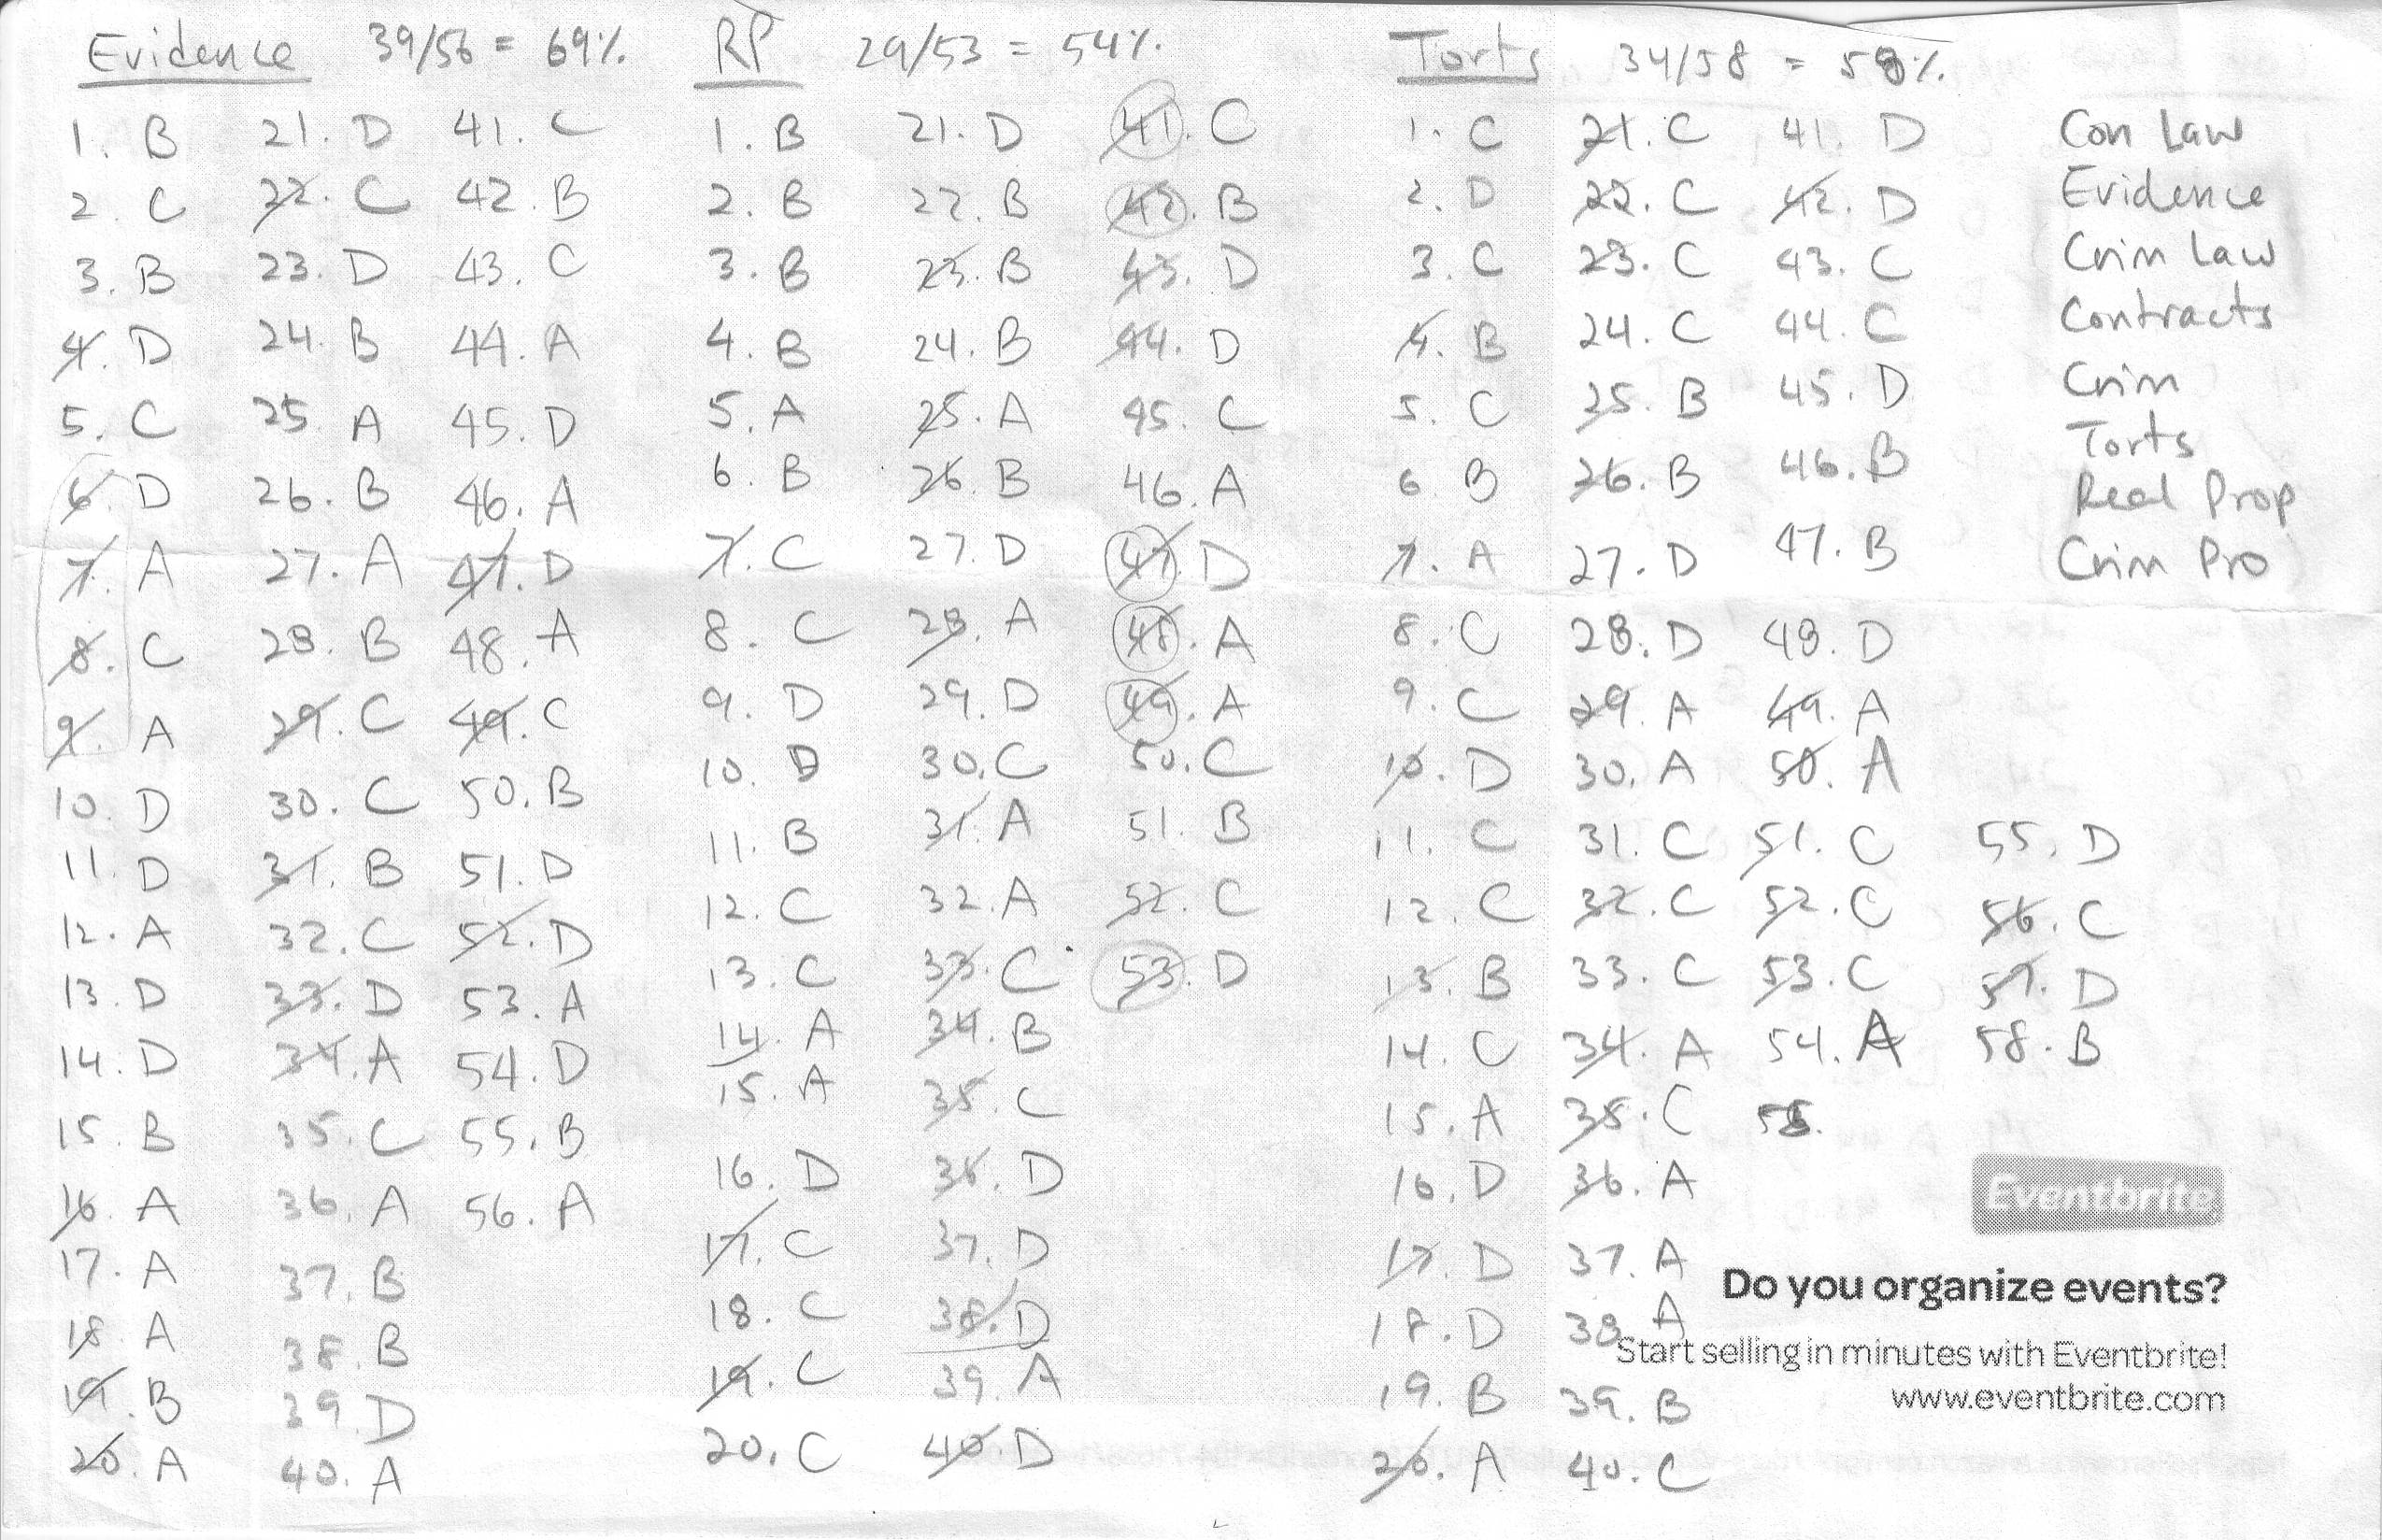 Evidence 39/56 = 69%
1. B
2. C
3. B
4. D
5. C
6. D
7. A
8. C
9. A
10. D
11. D
12. A
13. D
14. D
15. B
16. A
17. A
18. A
19. B
20. A
21. D
22. C
23. D
24. B
25. A
26. B
27. A
28. B
29. C
30. C
31. B
32. C
33. D
34. A
35. C
36. A
37. B
38. B
39. D
40. A
41. C
42. B
43. C
44. A
45. D
46. A
47. D
48. A
49. C
50. B
51. D
52. D
53. A
54. D
55. B
56. A
RP 29/53 = 54%
1. B
2. B
3. B
4. B
5. A
6. B
7. C
8. C
9. D
10. D
11. B
12. C
13. C
14. A
15. A
16. D
17. C
18. C
19. C
20. C
21. D
22. B
23. B
24. B
25. A
26. B
27. D
28. A
29. D
30. C
31. A
32. A
33. C
34. B
35. C
36. D
37. D
38. D
39. A
40. D
41. C
42. B
43. D
44. D
45. C
46. A
47. D
48. A
49. A
50. C
51. B
52. C
53. D
Torts 34/58 = 58%
1. C
2. D
3. C
4. B
5. C
6. B
7. A
8. C
9. C
10. D
11. C
12. C
13. B
14. C
15. A
16. D
17. D
18. D
19. B
20. A
21. C
22. C
23. C
24. C
25. B
26. B
27. D
28. D
29. A
30. A
31. C
32. C
33. C
34. A
35. C
36. A
37. A
38. A
39. B
40. C
41. D
42. D
43. C
44. C
45. D
46. B
47. B
48. D
49. A
50. A
51. C
52. C
53. C
54. A
55. D
56. C
57. D
58. B
Con Law
Evidence
Crim Law
Contracts
Crim
Torts
Real Prop
Crim Pro
Eventbrite
Do you organize events?
Start selling in minutes with Eventbrite!
www.eventbrite.com